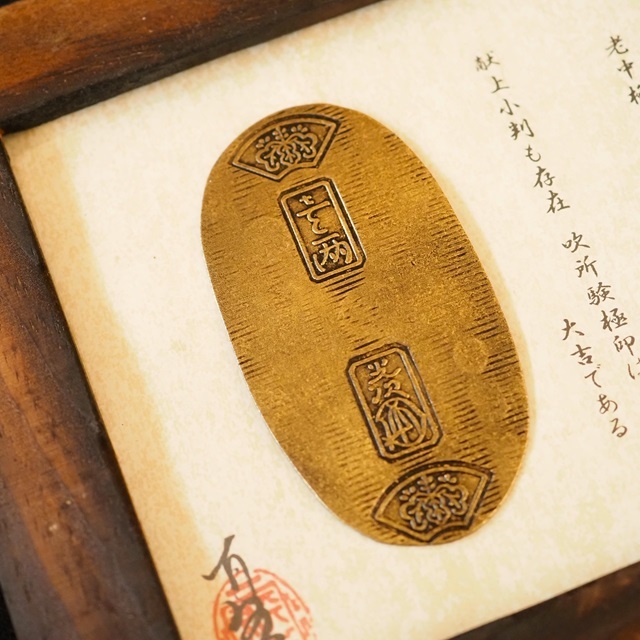 老中
献上小判も存在 吹所験極印は
大吉である
壱両
光次